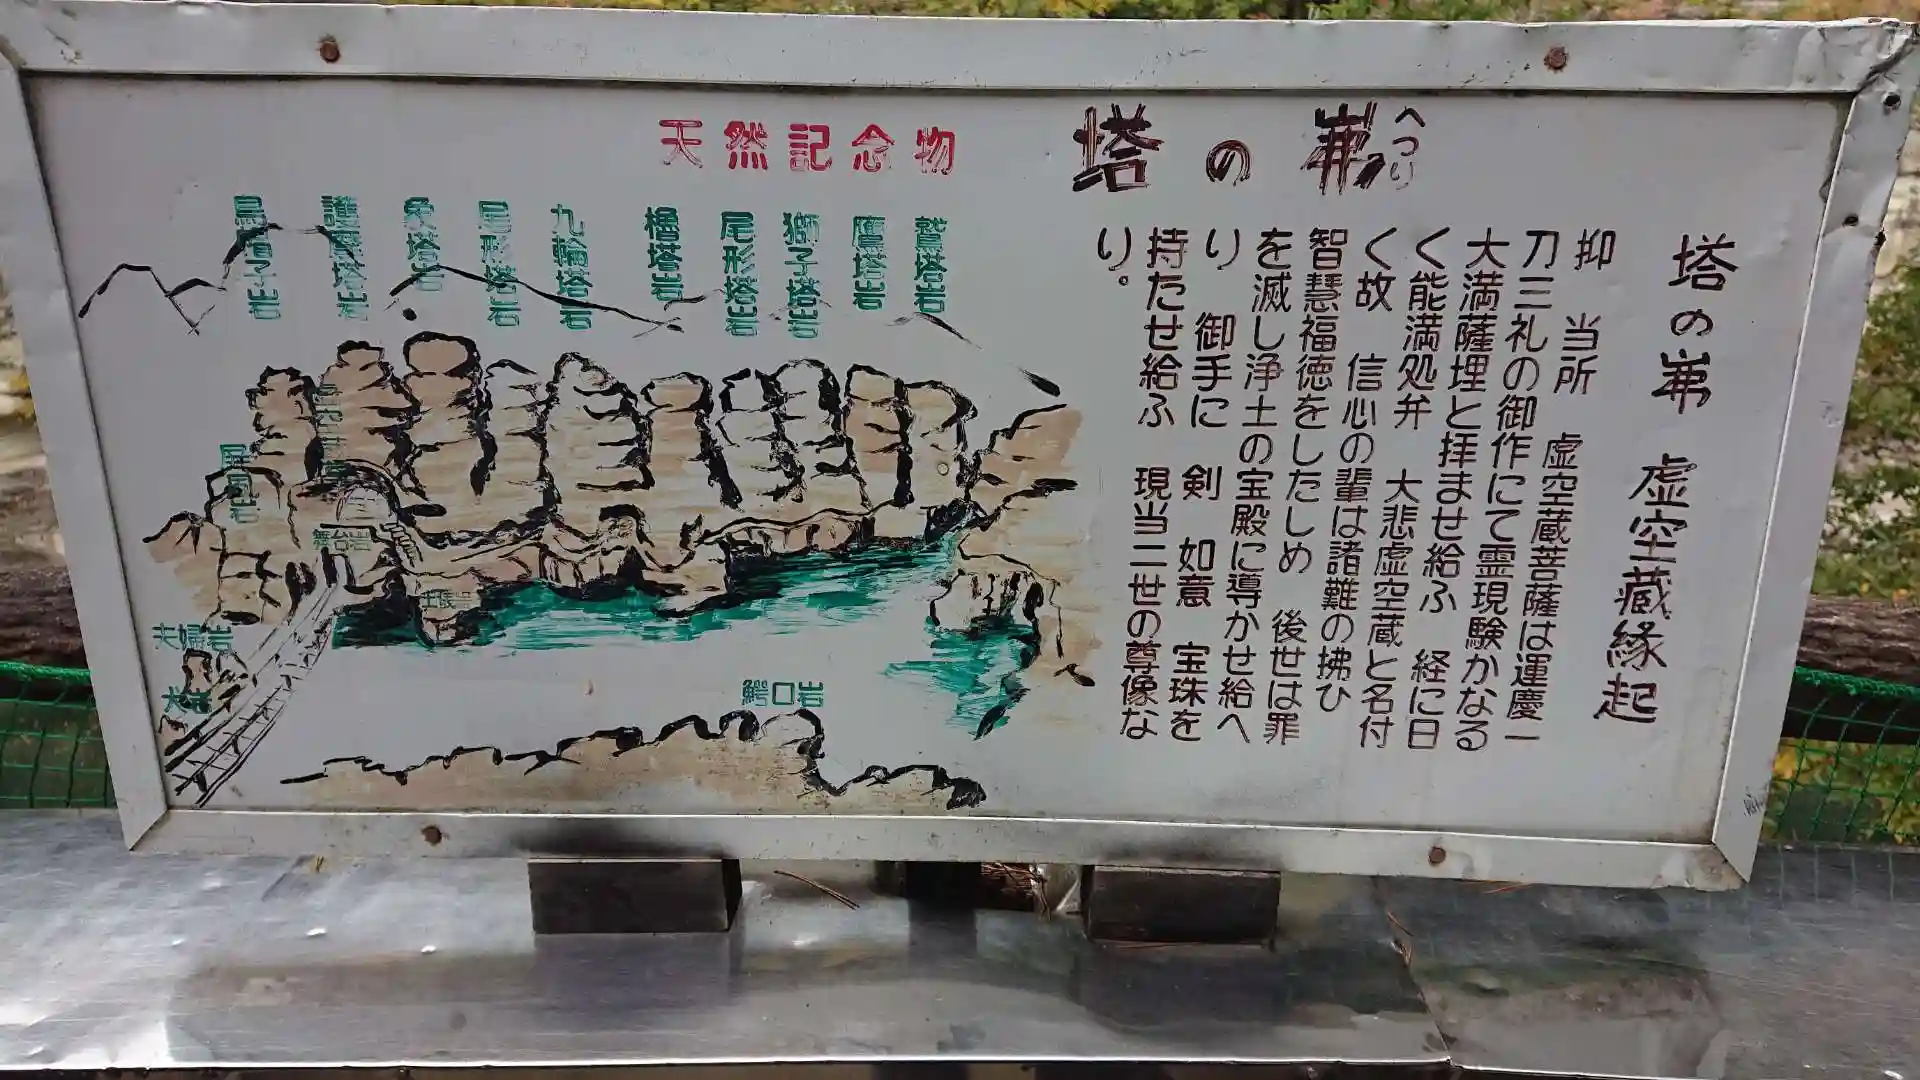 天然記念物
塔の岪
へつり
塔の岪 虚空蔵縁起
抑 当所 虚空蔵菩薩は運慶一
刀三礼の御作にて霊現験かなる
大満薩埵と拝ませ給ふ 経に曰
く能満処弁 大悲虚空蔵と名付
く故 信心の輩は諸難の拂ひ
智慧福徳をしたしめ 後世は罪
を滅し浄土の宝殿に導かせ給へ
り 御手に 剣 如意 宝珠を
持たせ給ふ 現当二世の尊像な
り。
鷲塔岩
鷹塔岩
獅子塔岩
尾形塔岩
櫓塔岩
九輪塔岩
尾形塔岩
象塔岩
護摩塔岩
烏帽子岩
屏風岩
舞台岩
夫婦岩
犬岩
鰐口岩